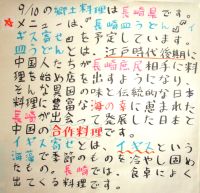 9/10の郷土料理は長崎県です。
★メニューは、"長崎皿うどん"、"イ
ギス寄せ"を予定しています。
皿うどんとは、江戸時代後期に
中国人たちが長崎庶民相手に料
理を始め店を出すようになり、
そんな異国的な味と日本の
料理に豊富な海の幸に恵まれた
長崎が出会って発展した日本と
中国の合作料理です。
イギス寄せとは、イギスという
海藻で季節のものを冷やし固め
たもの。長崎では、食卓によく
出てくる料理です。